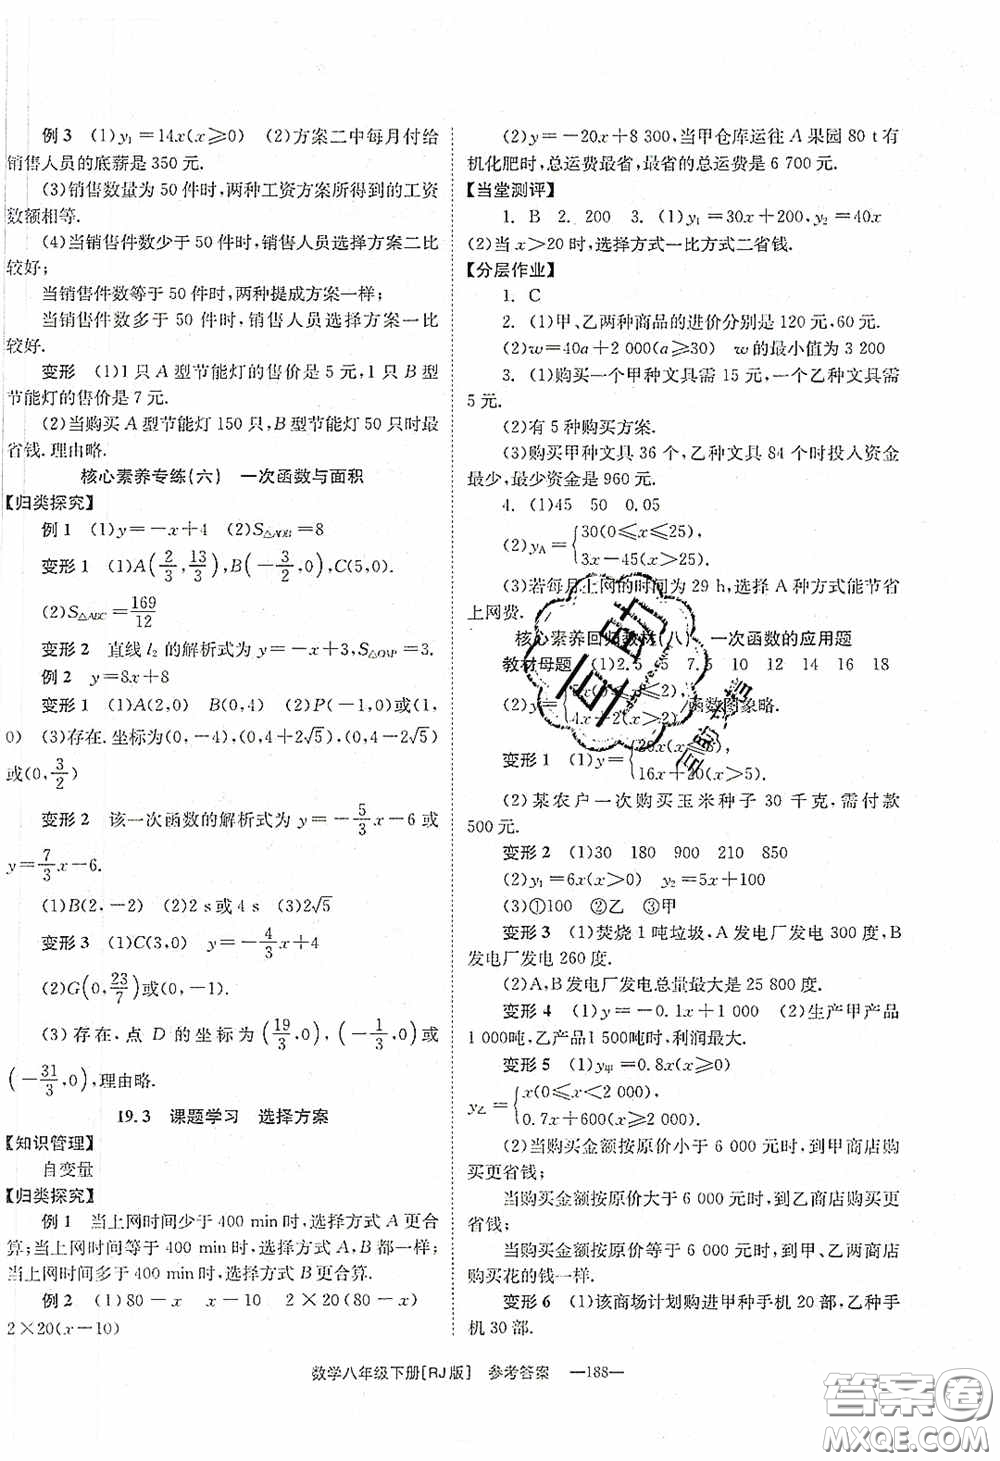 例 3 (1)y₁=14x(x⩾0) (2)方案二中每月付给
销售人员的底薪是 350 元.
(3)销售数量为 50 件时,两种工资方案所得到的工资
数额相等.
(4)当销售件数少于 50 件时,销售人员选择方案二比
较好;
当销售件数等于 50 件时,两种提成方案一样;
当销售件数多于 50 件时,销售人员选择方案一比
较好.
变形 (1)1 只 A 型节能灯的售价是 5 元,1 只 B 型
节能灯的售价是 7 元.
(2)当购买 A 型节能灯 150 只,B 型节能灯 50 只时最
省钱.理由略.
核心素养专练(六) 一次函数与面积
【归类探究】
例 1 (1)y=-x+4 (2)S△AOB=8
变形 1 (1)A(2/3,13/3),B(-3/2,0),C(5,0).
(2)S△ABC=169/12
变形 2 直线 l₂ 的解析式为 y=-x+3,S△OAP=3.
例 2 y=8x+8
变形 1 (1)A(2,0) B(0,4) (2)P(-1,0)或(1,
0) (3)存在.坐标为(0,-4),(0,4+2√5),(0,4-2√5)
或(0,3/2)
变形 2 该一次函数的解析式为 y=-5/3x-6 或
y=7/3x-6.
(1)B(2,-2) (2)2 s或 4 s (3)2√5
变形 3 (1)C(3,0) y=-4/3x+4
(2)G(0,23/7)或(0,-1).
(3)存在,点 D 的坐标为(19/3,0),(-1/3,0)或
(-31/3,0),理由略.
19.3 课题学习 选择方案
【知识管理】
自变量
【归类探究】
例 1 当上网时间少于 400 min 时,选择方式 A 更合
算;当上网时间等于 400 min 时,选择方式 A,B 都一样;
当上网时间多于 400 min 时,选择方式 B 更合算.
例 2 (1)80-x x-10 2×20(80-x)
2×20(x-10)
(2)y=-20x+8 300,当甲仓库运往 A 果园 80 t 有
机化肥时,总运费最省,最省的总运费是 6 700 元.
【当堂测评】
1. B 2. 200 3. (1)y₁=30x+200,y₂=40x
(2)当 x>20 时,选择方式一比方式二省钱.
【分层作业】
1. C
2. (1)甲、乙两种商品的进价分别是 120 元,60 元.
(2)w=40a+2 000(a⩾30) w 的最小值为 3 200
3. (1)购买一个甲种文具需 15 元,一个乙种文具需
5 元.
(2)有 5 种购买方案.
(3)购买甲种文具 36 个,乙种文具 84 个时投入资金
最少,最少资金是 960 元.
4. (1)45 50 0.05
(2)yA={30(0⩽x⩽25),
3x-45(x>25).
(3)若每月上网的时间为 29 h,选择 A 种方式能节省
上网费.
核心素养回归教材(八) 一次函数的应用题
教材母题 (1)2.5 5 7.5 10 12 14 16 18
(2)y={5x(0⩽x⩽2), 函数图象略.
4x+2(x>2)
变形 1 (1)y={20x(x⩽5),
16x+20(x>5).
(2)某农户一次购买玉米种子 30 千克,需付款
500 元.
变形 2 (1)30 180 900 210 850
(2)y₁=6x(x>0) y₂=5x+100
(3)①100 ②乙 ③甲
变形 3 (1)焚烧 1 吨垃圾,A 发电厂发电 300 度,B
发电厂发电 260 度.
(2)A,B 发电厂发电总量最大是 25 800 度.
变形 4 (1)y=-0.1x+1 000 (2)生产甲产品
1 000吨,乙产品1 500吨时,利润最大.
变形 5 (1)y甲=0.8x(x⩾0)
y乙={x(0⩽x<2 000),
0.7x+600(x⩾2 000)
(2)当购买金额按原价小于 6 000 元时,到甲商店购
买更省钱;
当购买金额按原价大于 6 000 元时,到乙商店购买更
省钱;
当购买金额按原价等于 6 000 元时,到甲、乙两商店
购买花的钱一样.
变形 6 (1)该商场计划购进甲种手机 20 部,乙种手
机 30 部.
数学八年级下册[RJ版] 参考答案 —188—
答案圈
MXQE.COM